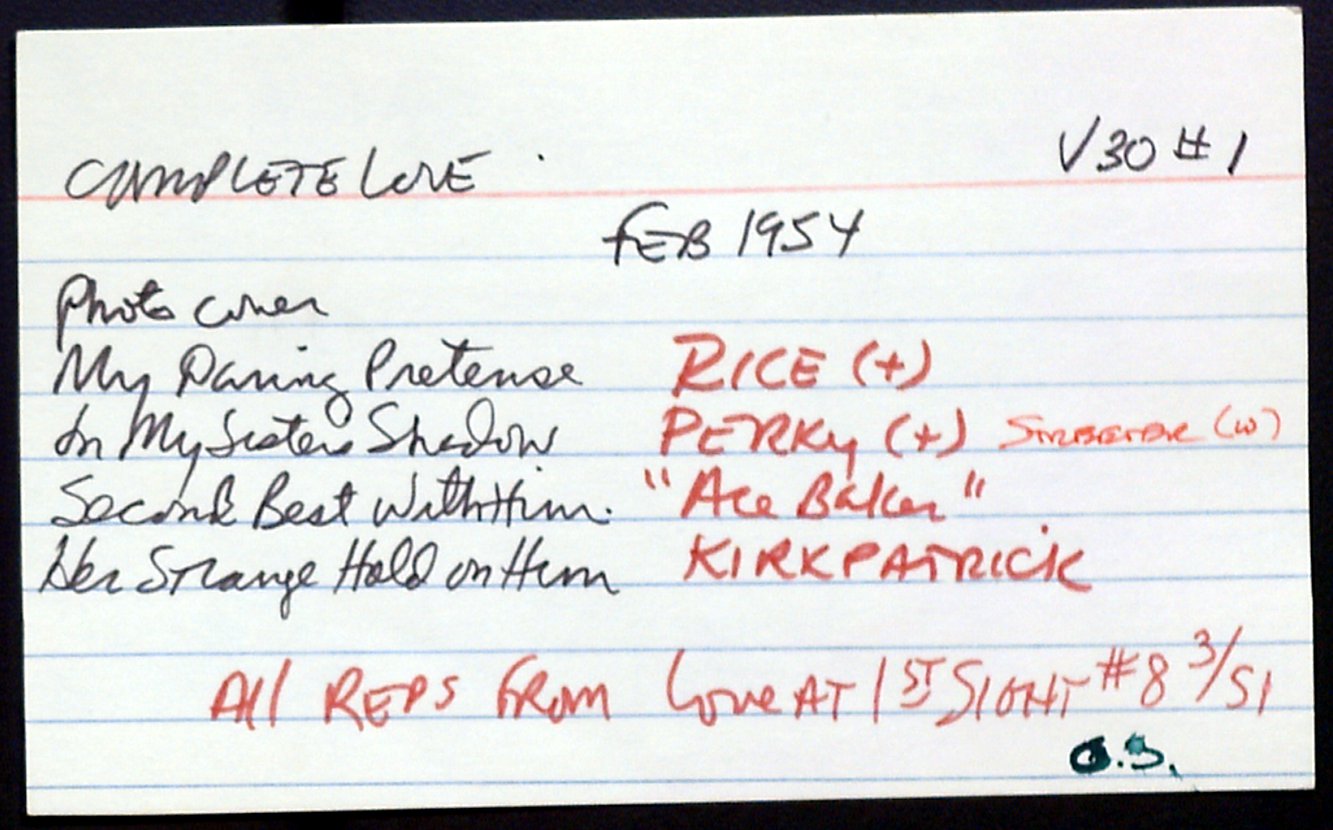 COMPLETE LOVE V30 #1
FEB 1954
Photo cover
My Daring Pretense RICE (+)
In My Sisters Shadow PERKY (+) STREETER (w)
Second Best With Him. "Ace Baker"
Her Strange Hold on Him KIRKPATRICK
All REPS FROM Love AT 1ST SIGHT #8 3/51
O.S.